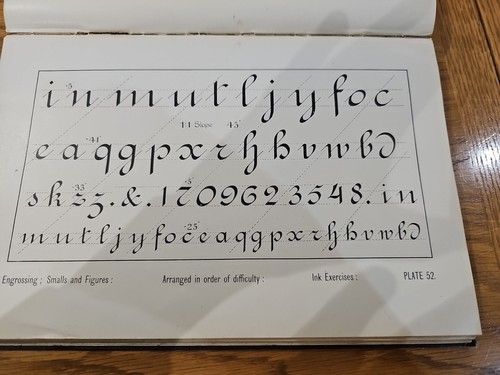 i n m u t l j y f o c
1:1 Slope 45°
e a q g p x r h h v w b d
s k z z . & . 1 7 0 9 6 2 3 5 4 8 . i n
m u t l j y f o c e a q g p x r h h v w b d
Engrossing ; Smalls and Figures : Arranged in order of difficulty : Ink Exercises : PLATE 52.